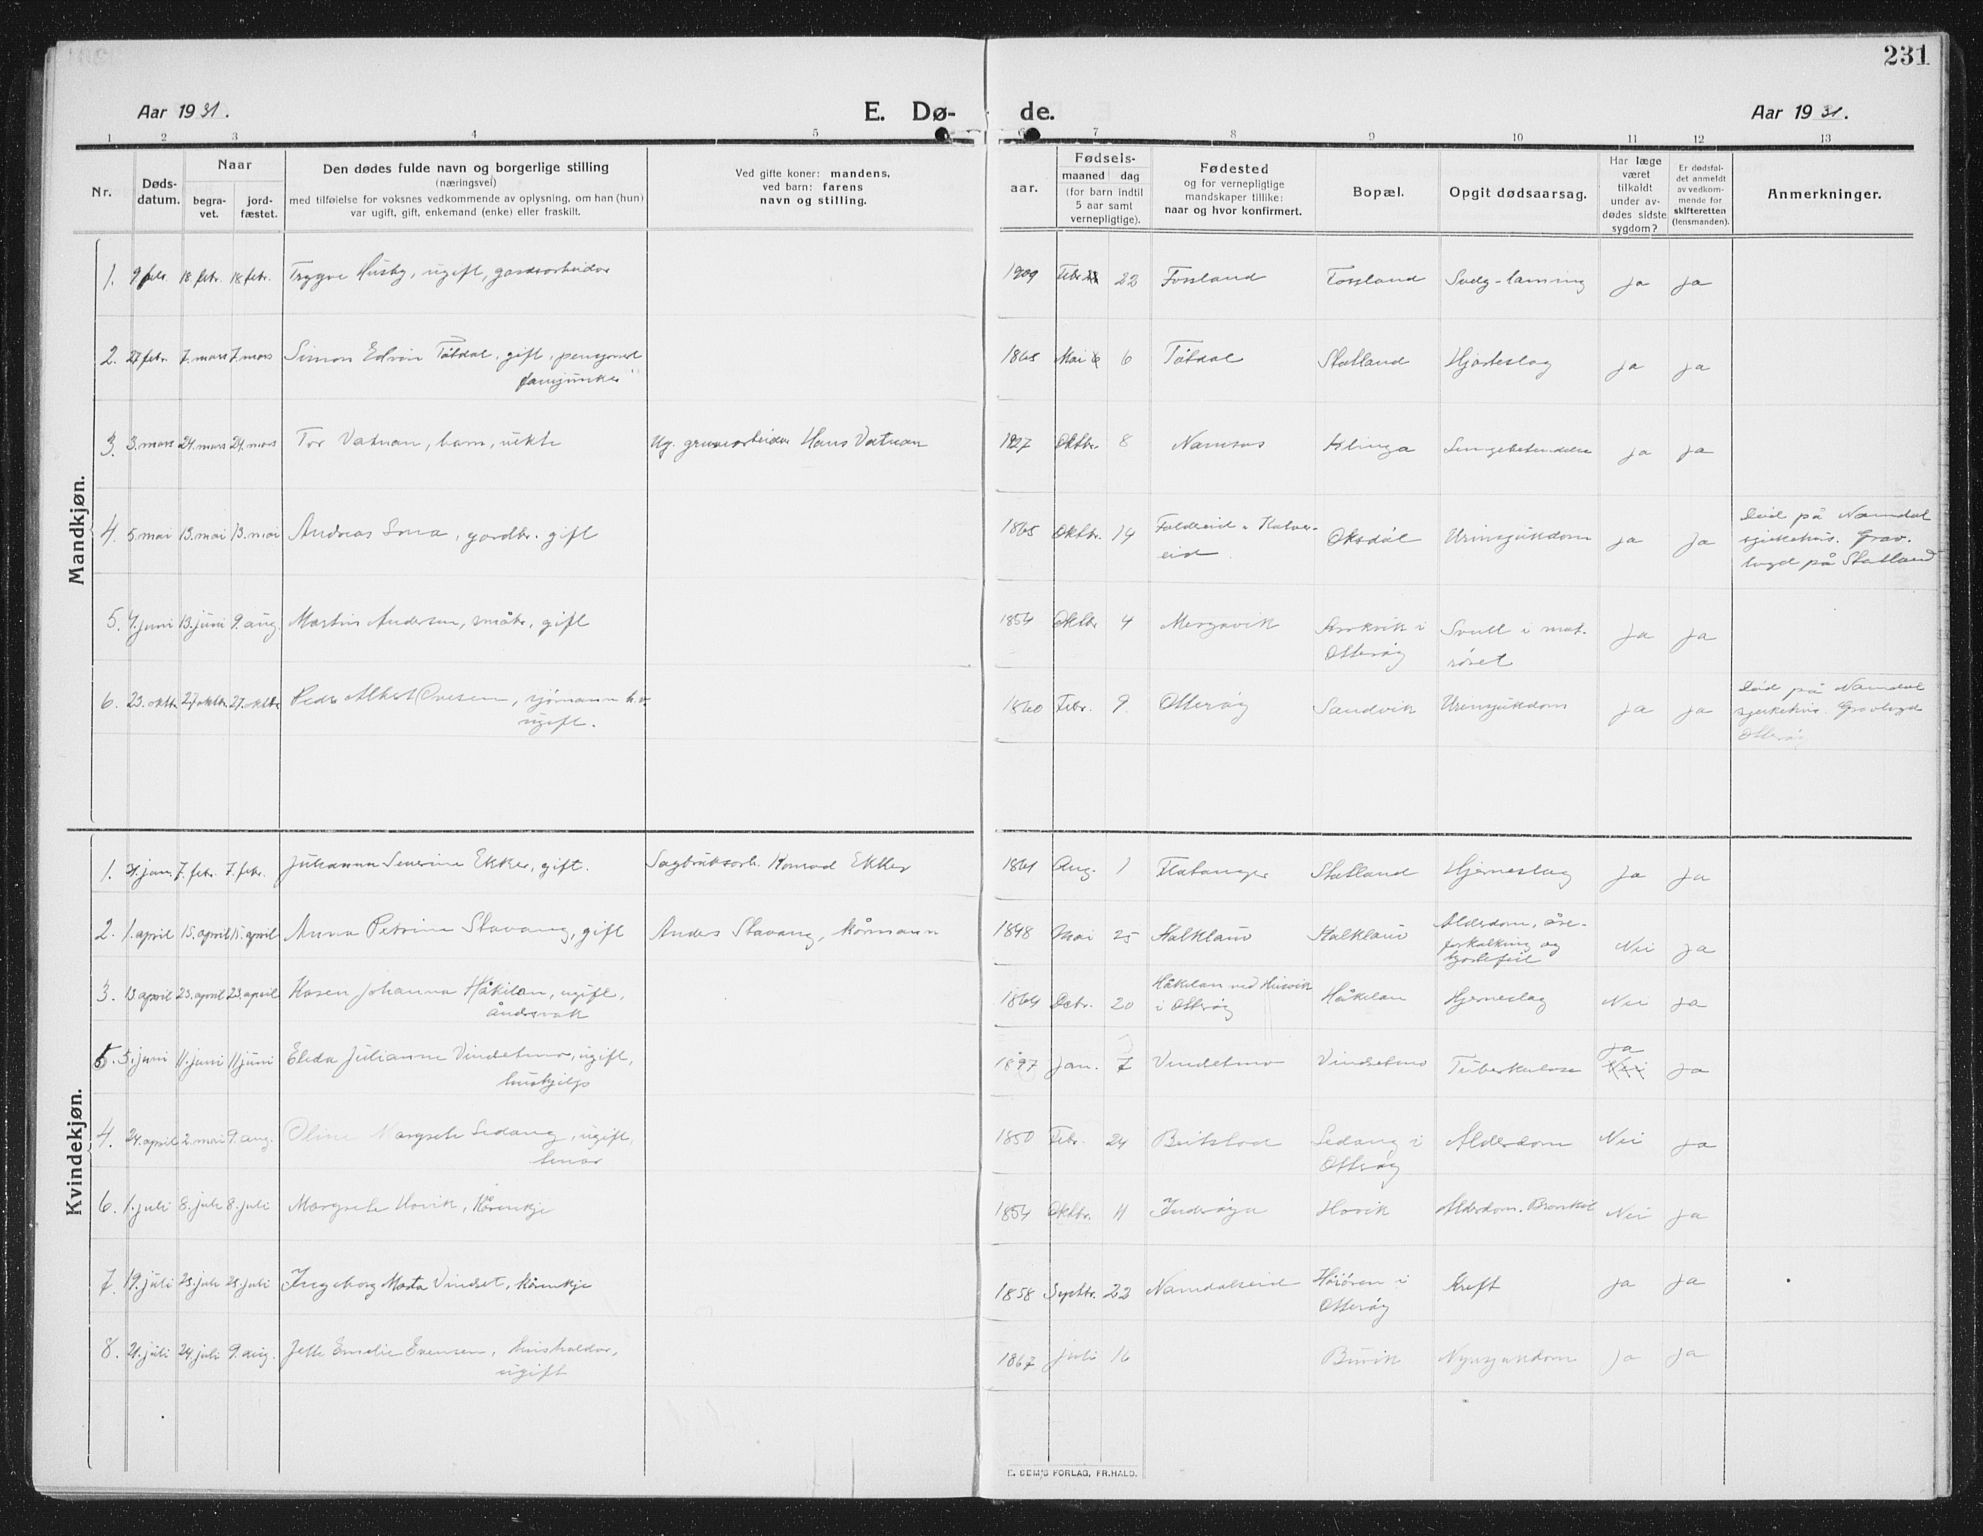 231
Aar 1931.
E. Dø-
de.
Aar 1931.
1 2 3 4 5 6 7 8 9 10 11 12 13
Nr.
Døds-
datum.
Naar
begra-
vet.
jord-
fæstet.
Den dødes fulde navn og borgerlige stilling
(næringsvei)
med tilføielse for voksnes vedkommende av oplysning, om han (hun)
var ugift, gift, enkemand (enke) eller fraskilt.
Ved gifte koner: mandens.
ved barn: farens
navn og stilling.
Fødsels-
aar.
maaned dag
(for barn indtil
5 aar samt
vernepligtige).
Fødested
og for vernepligtige
mandskaper tillike:
naar og hvor konfirmert.
Bopæl.
Opgit dødsaarsag.
Har læge
været
tilkaldt
under av-
dødes sidste
sygdom?
Er dødsfal-
det anmeldt
av vedkom-
mende for
skifteretten
(lensmanden).
Anmerkninger.
Mandkjøn.
1. 9 febr. 18 febr. 18 febr. Trygve Husby, ugift, gardsarbeider 1909 Febr. 22 Fossland Fossland Svelg-lamning ja ja
2. 27 febr. 7. mars 7. mars Simon Edvin Tøtdal, gift, pensjonert
"fanejunker" 1865 Mai 6 Tøtdal Statland Hjarteslag ja ja
3. 3. mars 24. mars 24. mars Tor Vatnan, barn, uekte Ug. gruvearbeider Hans Vatnan 1927 Oktbr. 8 Namsos Klinga Lungebetendelse ja ja
4. 5. mai 13. mai 13. mai Andreas Sona, gardbr. gift 1865 Oktbr. 14 Foldereid
eid. Oksdøl Urinsjukdom ja ja Død på Namdal
sjukehus. Grav-
lagd på Statland
5. 7. juni 13. juni 9. aug. Martin Andersen, småbr, gift 1854 Oktbr 4 Mergavik i
Otterøy Svull i mat-
røret ja ja
6. 23. oktbr. 27 oktbr. 27. oktbr. Peder Albert Ovesen, sjømann
ugift. 1860 Febr. 9. Otterøy Sandvik Urinsjukdom ja ja Død på Namdal
sjukehus. Gravlagd
Otterøy
Kvindekjøn.
1. 31. jan. 7. febr. 7. febr. Julianna Severine Ekker, gift. Sagbruksarb. Konrad Ekker 1861 Aug. 1 Flatanger Statland Hjerneslag ja ja
2. 1. april 15. april 15. april Anna Petrine Stavang, gift Anders Stavang, kårmann 1848 Mai 25 Halkland Halkland Alderdom, åre-
forkalkning og
hjartefeil Nei ja
3. 13 april 23. april 23. april Kasen Johanna Håkilan, ugift,
åndsvak 1864 Octr. 20 Håkilan ved Husvik
i Otterøy Håkilan Hjerneslag Nei ja
5. 5. juni 11. juni 11 juni Elida Julianne Vindetmo, ugift,
hushjelp 1897 Jan. 7 Vindetmo Vindsetmo Tuberkulose ja
Nei ja
4. 24. april 2. mai 9. aug. Oline Margrete Sedang, ugift, 1850 Febr. 24 Beitstad Sedang i
Otterøy Alderdom Nei ja
6. 1. juli 8. juli 8. juli Margrete Hovik, kårenkje 1854 Oktbr. 11 Inderøya Hovik Alderdom. Bronkit Nei ja
7. 19. juli 25. juli 25. juli Ingeborg Marta Vindset, kårenkje 1858 Septbr. 22 Namdalseid i
Otterøy Kreft ja ja
8. 21. juli 24. juli 9. aug. Jette Emelie Evensen, husholder,
ugift 1867 juli 16 Buvik Nyresjukdom ja ja
E. SEM'S FORLAG, FR.HALD.